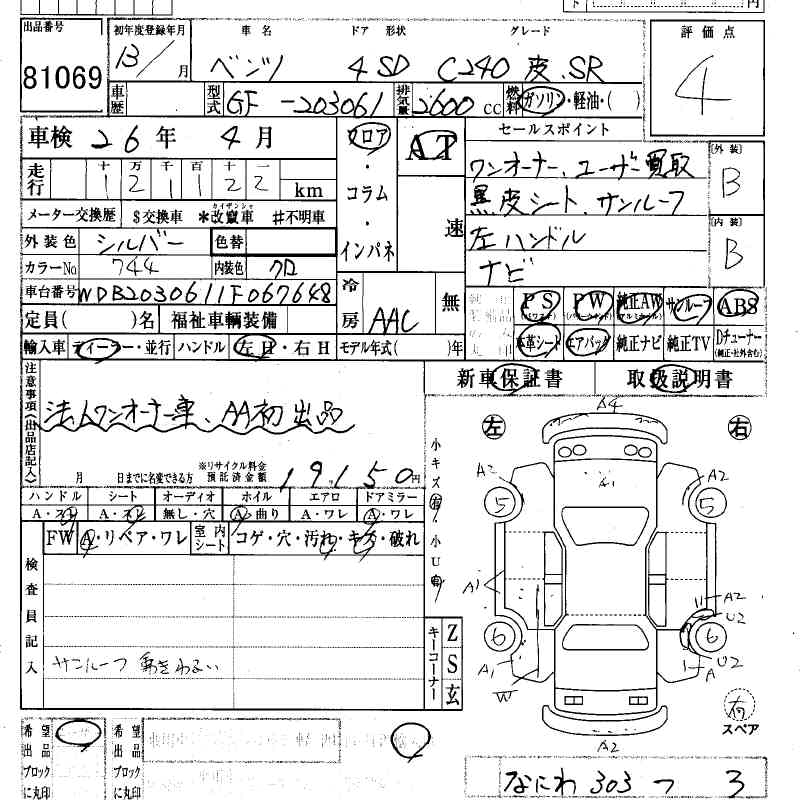 出品番号 初年度登録年月 車名 ドア形状 グレード 評価点
81069 13/月 ベンツ 4SD C240 皮.SR 4
車歴 型式 GF-203061 排気量 2600cc 燃料 ガソリン・軽油・( )
車検 26年 4月 フロア AT セールスポイント
走行 十万千百十一 1 2 1 1 2 2 km ・コラム・インパネ 速
ワンオーナー、ユーザー買取 外装 B
黒皮シート、サンルーフ
左ハンドル 内装 B
ナビ
メーター交換歴 $交換車 *改竄車 カイザンシャ #不明車
外装色 シルバー 色替
カラーNo 744 内装色 クロ
車台番号 WDB2030611F067648 冷房 AAC 無
定員( )名 福祉車輌装備
PS (パワステ) PW (パワーウインド) 純正AW (アルミホイール) サンルーフ ABS
本革シート エアバック 純正ナビ 純正TV Dチューナー (純正・社外含む)
輸入車 ディーラー・並行 ハンドル 左H・右H モデル年式( )年
新車保証書 取扱説明書
注意事項(出品店記入)
法人ワンオーナー車、AA初出品
月 日までに名変できる方 ※リサイクル料金預託済金額 19,150円
ハンドル シート オーディオ ホイル エアロ ドアミラー
A・スレ A・スレ 無し・穴 A・曲り A・ワレ A・ワレ
FW A・リペア・ワレ 室内シート コゲ・穴・汚れ・キズ・破れ
検査員記入
サンルーフ動きわるい
小キズ有 小U有
キーコーナー Z S 玄
左 右
A4
A2 A1 A2
5 5
A1 A2
U2
6 6
A1 A U2
W
有
スペア
A2
希望出品ブロックに丸印 希望出品ブロックに丸印
なにわ 303 つ 3